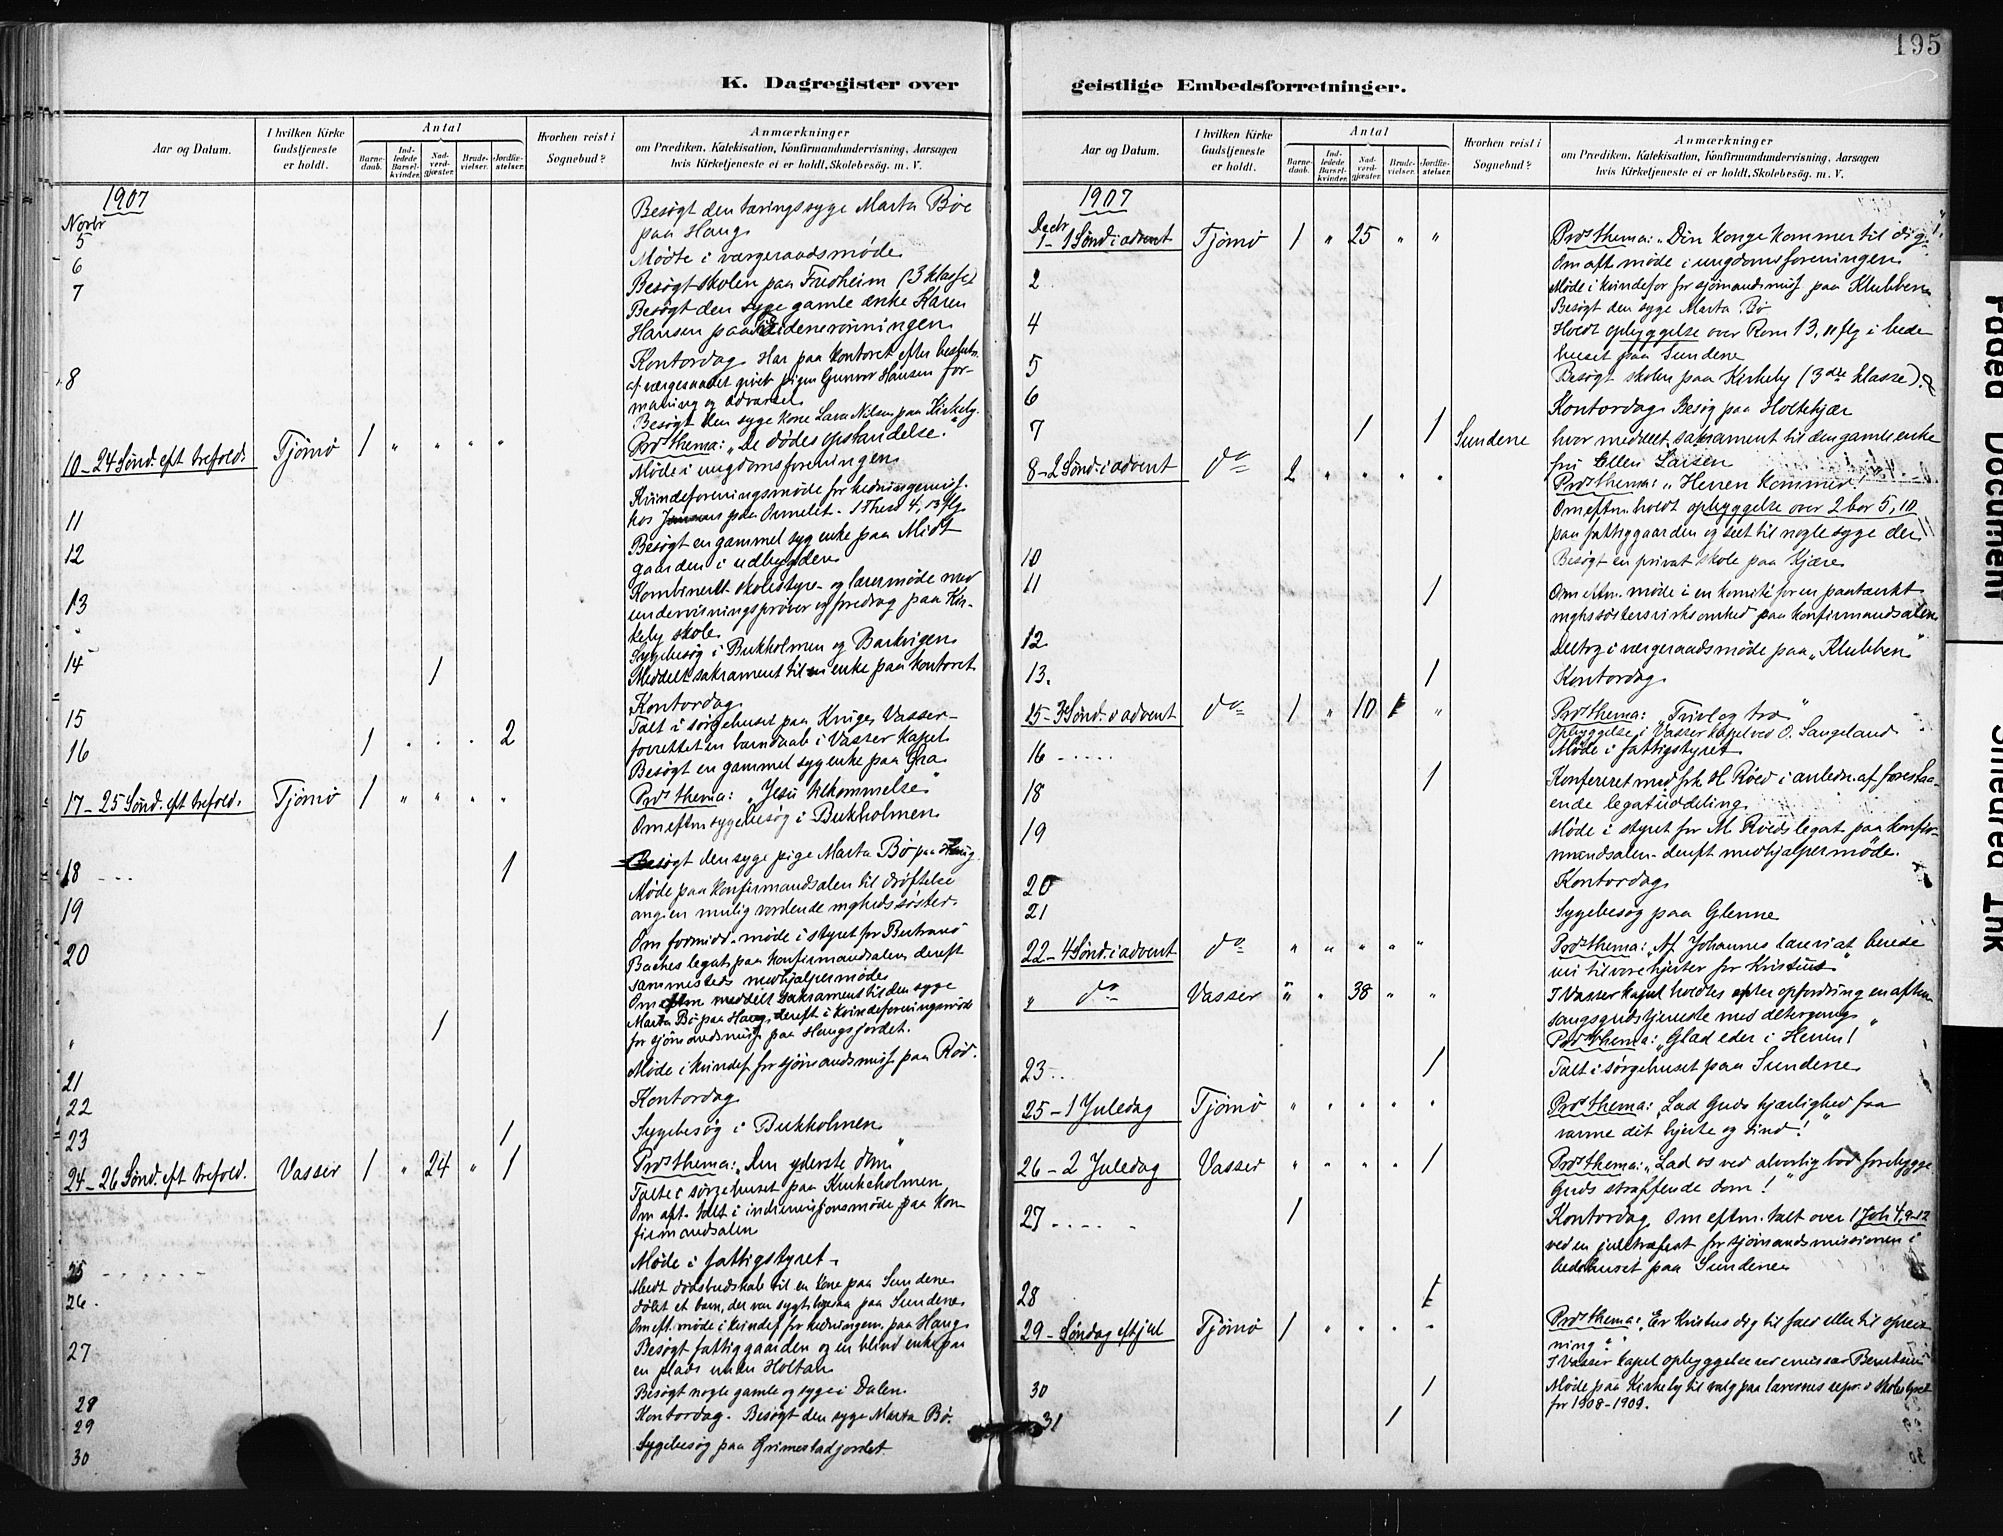 195
K. Dagregister over
Aar og Datum.
I hvilken Kirke Gudstjeneste er holdt.
Antal
Barne-daab.
Ind-ledede Barsel-kvinder.
Nad-verd-gjæster.
Brude-vielser.
Jordfæ-stelser.
Hvorhen reist i Sognebud?
Anmærkninger
om Prædiken, Katekisation, Konfirmandundervisning, Aarsagen
hvis Kirketjeneste ei er holdt, Skolebesøg. m. V.
1907
Novbr
Besøgt den tæringssyge Marta Bøe
5
paa Haug
Mødte i værgeraadsmøde
6
Besøgt skolen paa Fredheim (3 klasse)
7
Besøgt den syge gamle enke Karen
Hansen paa
Kontordag. Har paa kontoret efter beslutn.
8
af værgeraadet givet pigen Gunvor Hansen for-
maning og advarsel
Besøgt den syge kone Lava Nilsen paa Kirkeby
10 - 24 Sønd. eft trefold. Tjømø 1 " " " "
Præd thema: "De dødes opstandelse."
Møde i ungdomsforeningen
Kvindeforeningsmøde for hedningemis.
11
hos paa Ormelet. 1 Thess 4, 13 flg
Besøgt en gammel syg enke paa Midt
12
gaarden i udbygden
Kombineret skolestyre- og lærermøde med
13
undervisningsprøver og foredrag paa Kir-
keby skole
Sygebesøg i Bukholmen og Barkvigen
14 1
Meddelt sakrament til en enke paa kontoret
Kontordag
15
Talt i sørgehuset paa Kruge, Vasser-
16 1 . . . 2
forrettet en barnedaab i Vasser kapel
Besøgt en gammel syg enke paa Gra
17 - 25 Sønd. eft trefold. Tjømø 1 " " " "
Præd thema: "Jesu tilkommelse"
Om eftm sygebesøg i Bukholmen
18 - - - 1
Besøgt den syge pige Marta Bø paa Haug.
Møde paa konfirmandsalen til drøftelse
19
ang en mulig vordende menighedssøster
Om formidd. møde i styret for Bertrand
20
Baches legat paa konfirmandsalen, dereft
sammesteds medhjælpermøde
Om eftm meddelt sakrament til den syge
" 1
Marta Bø paa Haug, dereft i kvindeforeningsmøde
for sjømandsmis. paa Haugsjordet.
21
Møde i kvindef for sjømandsmis. paa Rød.
22
Kontordag
23 1
Sygebesøg i Bukholmen
24 - 26 Sønd. eft trefold. Vasser 1 " 24 " 1
Præd thema: "Den yderste dom"
Talte i sørgehuset paa Krukeholmen
Om aft. talt i indremissionsmøde paa kon-
firmandsalen
25 - - - - - -
Møde i fattigstyret.
26.
Meldt dødsbudskab til en kone paa Sundene
døbt et barn, der var sygt, ligesaa paa Sundene
Om eft. møde i kvindef for hedningem. paa Haug
27
Besøgt fattiggaarden og en blind enke paa
en plads under Holtan
28
Besøgt nogle gamle og syge i Dalen
29
Kontordag. Besøgt den syge Marta Bø.
30
Sygebesøg paa Grimestadjordet.
geistlige Embedsforretninger.
Aar og Datum.
I hvilken Kirke Gudstjeneste er holdt.
Antal
Barne-daab.
Ind-ledede Barsel-kvinder.
Nad-verd-gjæster.
Brude-vielser.
Jordfæ-stelser.
Hvorhen reist i Sognebud?
Anmærkninger
om Prædiken, Katekisation, Konfirmandundervisning, Aarsagen
hvis Kirketjeneste ei er holdt, Skolebesøg. m. V.
1907
Decbr
1 - 1 Sønd i advent Tjømø 1 " 25 " "
Præd thema: "Din konge kommer til dig."
Om aft møde i ungdomsforeningen
2
Møde i kvindefor for sjømandsmis paa Klubben
Besøgt den syge Marta Bø
4
Holdt opbyggelse over Rom 13, 11 flg i bede
huset paa Sundene
5
Besøgt skolen paa Kirkeby (3die klasse)
6
Kontordag Besøg paa Holtekjær
7 1 1 Sundene
hvor meddelt sakrament til den gamle enke
fru Ellen Larsen
8 - 2 Sønd. i advent do 2 " " " "
Præd thema: "Herren kommer!"
Om eftm. holdt opbyggelse over 2 kor 5, 10
paa fattiggaarden og seet til nogle syge der
10
Besøgt en privat skole paa Kjære
11 1
Om eftm. møde i en komité for en paatænkt
mghssøstersvirksomhed paa konfirmandsalen
12
Deltog i værgeraadsmøde paa "Klubben"
13. 1
Kontordag
15 - 3 Sønd. i advent do 1 " 10 "
Præd thema: "Tvivl og tro"
Opbyggelse i Vasser kapel ved O. Sangeland
16 - - - - -
Møde i fattigstyret
18 1
Konfereret med frk H. Røed i anledn. af forestaa-
ende legatuddeling
19
Møde i styret for M. Røeds legat paa konfir-
mandsalen - dereft medhjælpermøde.
20
Kontordag
21
Sygebesøg paa Glenne
22 - 4 Sønd. i advent do " " " " "
Præd thema: "Af Johannes lære vi at berede
vei til vore hjerter for Kristus"
" do Vasser " " 38 " "
I Vasser kapel holdtes efter opfordring en aften
sangsgudstjeneste med altergang
Præd thema: "Glæd eder i Herren!"
23 - - 1
Talt i sørgehuset paa Sundene
25 - 1 Juledag Tjømø " " " " "
Præd thema: "Lad Guds kjærlighed faa
varme dit hjerte og sind!"
26 - 2 Juledag Vasser " " " " 1
Præd thema: "Lad os ved alvorlig bod forebygge
Guds straffende dom!"
27 - - - - - 1
Kontordag Om eftm. talt over 1 Joh 4, 9-12
ved en juletræfest for sjømandsmissionen i
bedehuset paa Sundene
28 1
29 - Søndag eft jul Tjømø 1 " " " "
Præd thema: "Er Kristus dig til fald eller til opreis-
ning?"
I Vasser kapel opbyggelse ved emissær Berntsen
30 1
Møde paa Kirkeby til valg paa lærernes repr. i skolestyret
31 1
for 1908-1909.
Faded Document
Smeared Ink